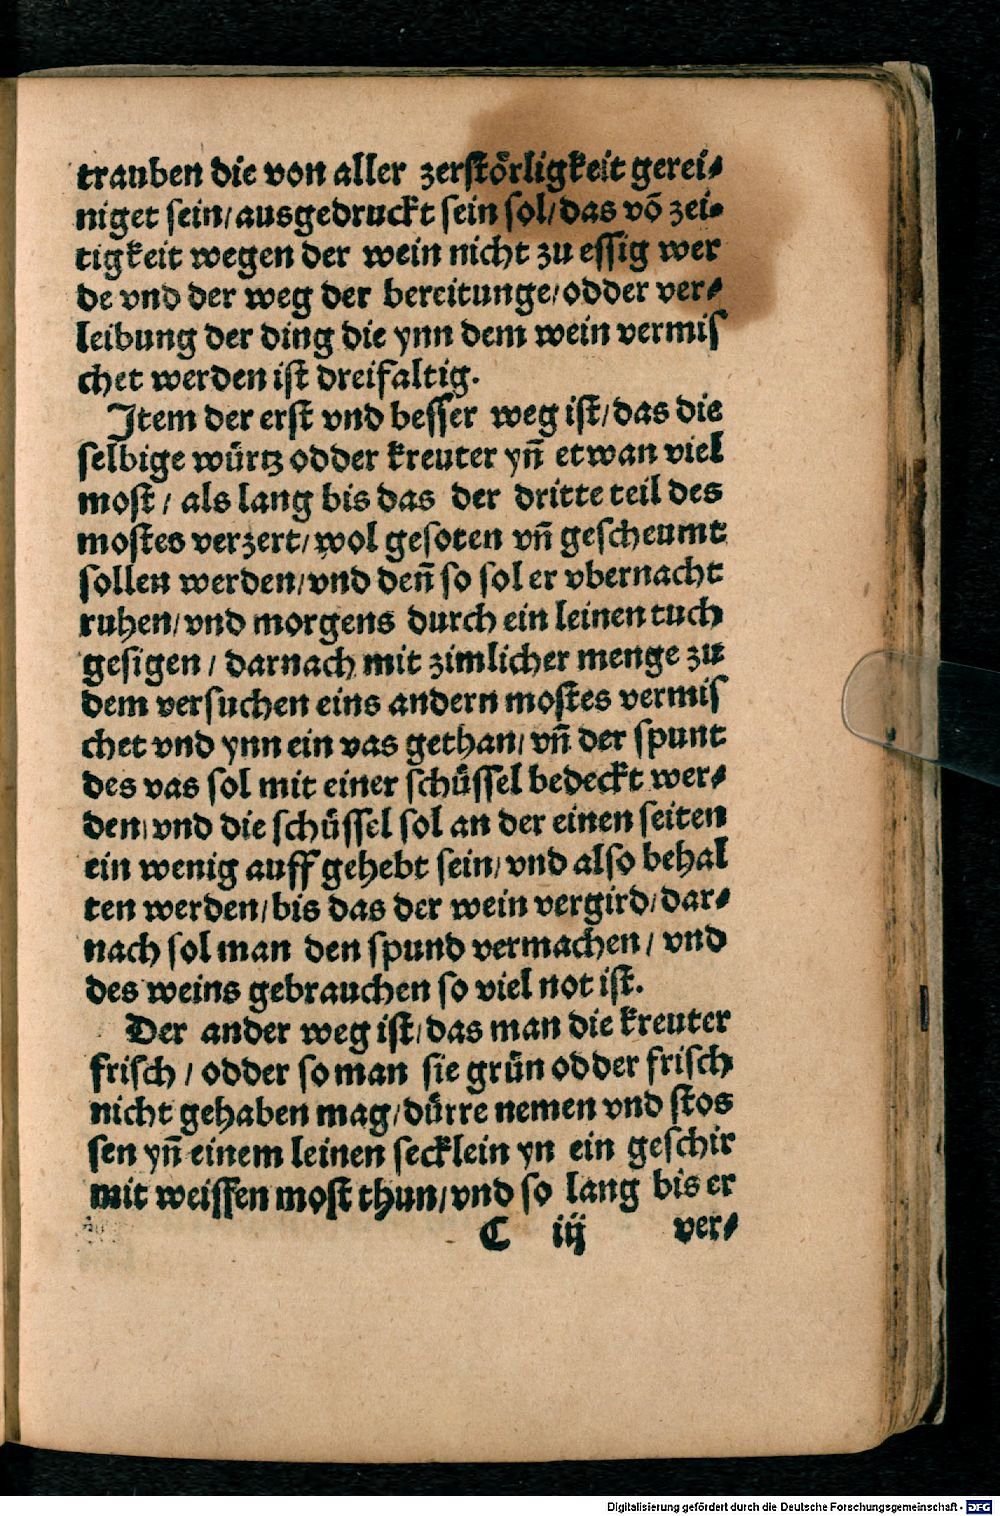 trauben die von aller zerstörligkeit gerei⸗
niget sein/ausgedruckt sein sol/das võ zei⸗
tigkeit wegen der wein nicht zu essig wer
de vnd der weg der bereitunge/odder ver⸗
leibung der ding die ynn dem wein vermis
chet werden ist dreifaltig.
Item der erst vnd besser weg ist/das die
selbige würtz odder kreuter yñ etwan viel
most/ als lang bis das der dritte teil des
mostes verzert/wol gesoten vñ gescheumt
sollen werden/vnd deñ so sol er vbernacht
ruhen/vnd morgens durch ein leinen tuch
gesigen/ darnach mit zimlicher menge zu
dem versuchen eins andern mostes vermis
chet vnd ynn ein vas gethan/vñ der spunt
des vas sol mit einer schüssel bedeckt wer⸗
den/vnd die schüssel sol an der einen seiten
ein wenig auff gehebt sein/vnd also behal
ten werden/bis das der wein vergird/dar⸗
nach sol man den spund vermachen/ vnd
des weins gebrauchen so viel not ist.
Der ander weg ist/das man die kreuter
frisch/ odder so man sie grün odder frisch
nicht gehaben mag/dürre nemen vnd stos
sen yñ einem leinen secklein yn ein geschir
mit weissen most thun/vnd so lang bis er
C iij ver⸗
Digitalisierung gefördert durch die Deutsche Forschungsgemeinschaft - DFG